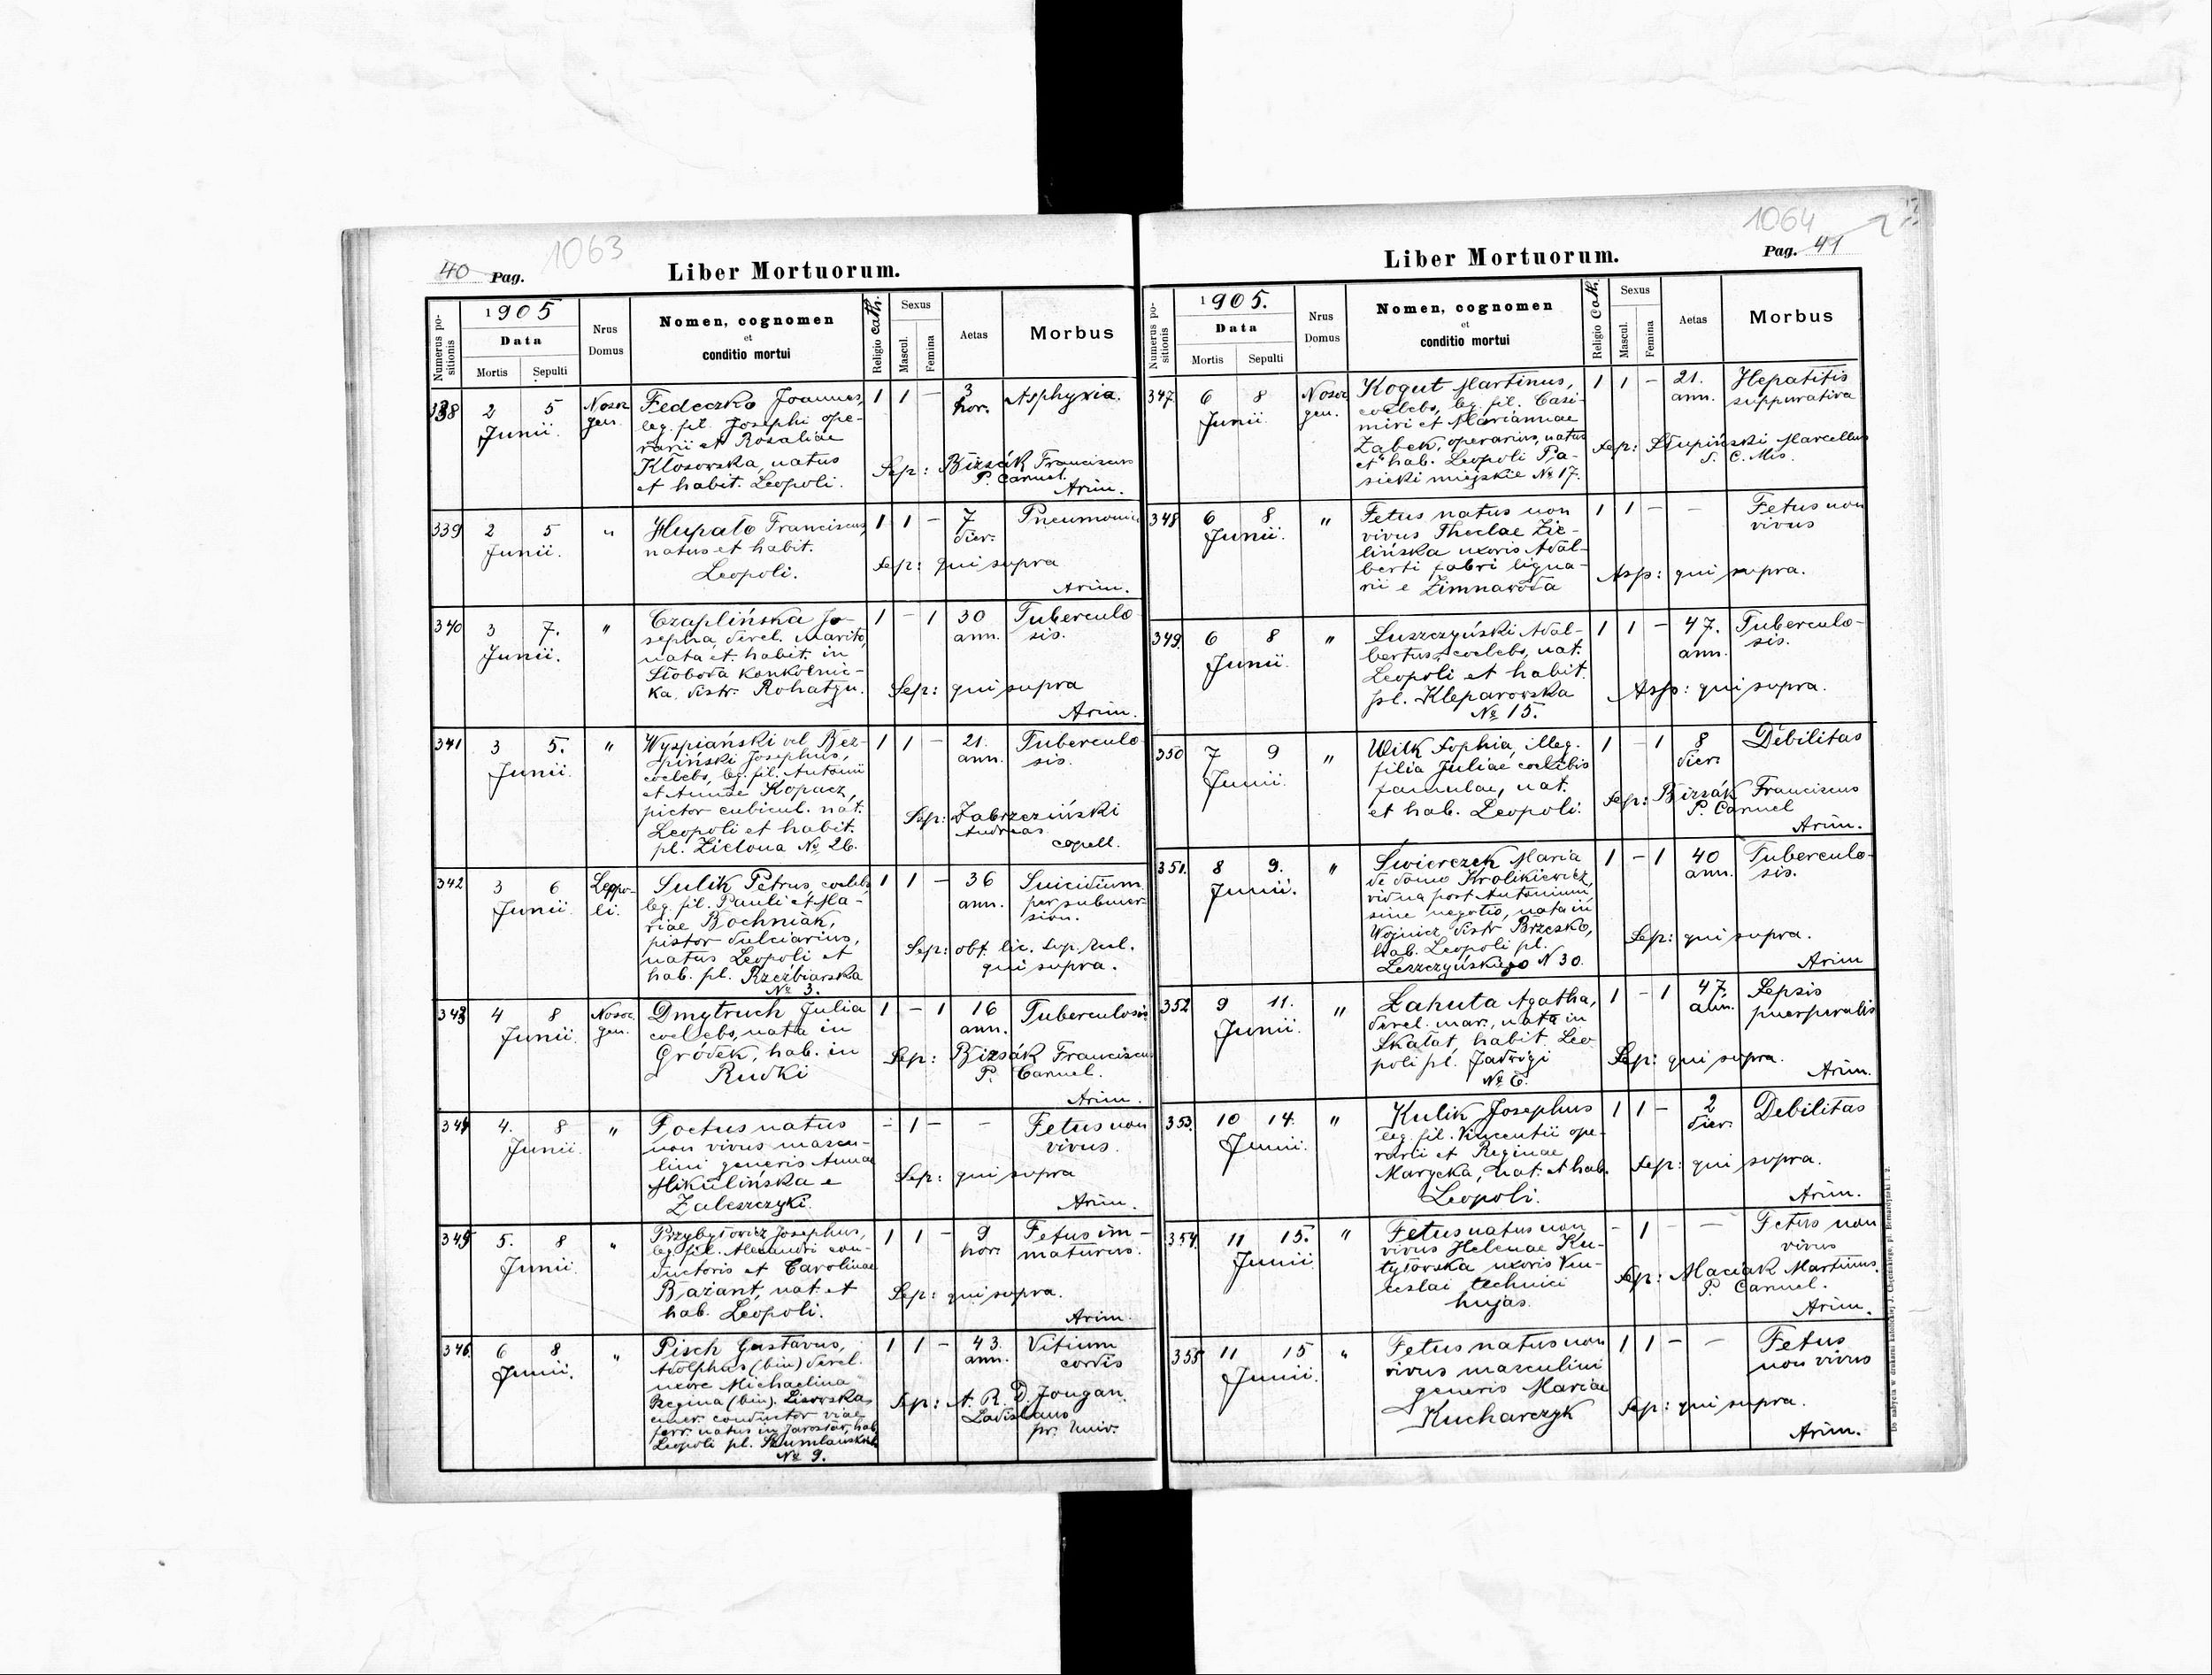 1063
40 Pag.
Liber Mortuorum.
Numerus positionis
1905
Data
Mortis
Sepulti
Nrus Domus
Nomen, cognomen
et
conditio mortui
Religio cath.
Sexus
Mascul.
Femina
Aetas
Morbus
338 2 5 Junii Nosoc. gen.
Fedeczko Joannes,
leg. fil. Josephi ope-
rarii et Rosaliae
Kłosowska, natus
et habit. Leopoli.
1 1 - 3 hor. Asphyxia.
Sep: Bizsák Franciscus
P. Carmel.
Arim.
339 2 5 Junii. "
Hupało Franciscus,
natus et habit.
Leopoli.
1 1 - 7 dier. Pneumonia
Sep: qui supra
Arim.
340 3 7. Junii. "
Czaplińska Jo-
sepha, derel. marito,
nata et habit. in
Słoboda Konkolnic-
ka, distr. Rohatyn.
1 - 1 30 ann. Tuberculo-
sis.
Sep: qui supra
Arim.
341 3 5. Junii. "
Wyspiański vel Bez-
piński Josephus,
coelebs, leg. fil. Antonii
et Annae Kopacz,
pictor cubicul. nat.
Leopoli et habit.
pl. Zielona № 26.
1 1 - 21. ann. Tuberculo-
sis.
Sep: Zabrzeziński
Andreas
capell.
342 3 6 Junii Leopo-
li.
Sulik Petrus, coelebs,
leg. fil. Pauli et Ma-
riae Bochniak,
pistor dulciarius,
natus Leopoli et
hab. pl. Rzeźbiarska
№ 3.
1 1 - 36 ann. Suicidium
per submer-
sion.
Sep: obt. lic. sep.
qui supra.
343 4 8 Junii. Nosoc. gen.
Dmytruch Julia
coelebs, nata in
Gródek, hab. in
Rudki
1 - 1 16 ann. Tuberculosis
Sep: Bizsák Franciscus
P. Carmel.
Arim.
344 4. 8 Junii. "
Foetus natus
non vivus mascu-
lini generis Annae
Mikulińska e
Zaleszczyki.
- 1 - - Fetus non
vivus.
Sep: qui supra
Arim.
345 5. 8 Junii. "
Przybyłowicz Josephus,
leg. fil. Alexandri con-
ductoris et Carolinae
Bażant, nat. et
hab. Leopoli.
1 1 - 9 hor. Fetus im-
maturus.
Sep: qui supra.
Arim.
346. 6 8 Junii. "
Pisch Gustavus,
Adolphus (bin) derel.
uxore Michaelina
Regina (bin). Lisowska,
emer. conductor viae
ferr. natus in Jarosław, hab.
Leopoli pl. Szumlańskich
№ 9.
1 1 - 43. ann. Vitium
cordis
Sep: A. R. D. Jougan
Ladislaus
pr. Univ.
1064
Liber Mortuorum.
Pag. 41
Numerus positionis
1905.
Data
Mortis
Sepulti
Nrus Domus
Nomen, cognomen
et
conditio mortui
Religio Cath.
Sexus
Mascul.
Femina
Aetas
Morbus
347 6 8 Junii. Nosoc. gen.
Kogut Martinus,
coelebs, leg. fil. Casi-
miri et Mariannae
Żabek, operarius, natus
et hab. Leopoli Pa-
sieki miejskie № 17.
1 1 - 21. ann. Hepatitis
suppurativa
Sep: Słupiński Marcellus
S. C. Mis.
348 6 8 Junii. "
Fetus natus non
vivus Theclae Zie-
lińska uxoris Adal-
berti fabri ligna-
rii e Zimnawoda
1 1 - - Fetus non
vivus
Asp: qui supra.
349. 6 8 Junii. "
Łuszczyński Adal-
bertus, coelebs, nat.
Leopoli et habit.
pl. Kleparowska
№ 15.
1 1 - 47. ann. Tuberculo-
sis.
Asp: qui supra.
350 7 9 Junii. "
Wilk Sophia, illeg.
filia Juliae coelibis
famulae, nat.
et hab. Leopoli.
1 - 1 8 dier. Debilitas
Sep: Bizsák Franciscus
P. Carmel
Arim.
351. 8 9. Junii. "
Świerczek Maria
de domo Krolikiewicz,
vidua post Antonium,
sine negotio, nata in
Wojnicz, distr Brzesko,
hab. Leopoli pl.
Leszczyńskiego N 30.
1 - 1 40 ann. Tuberculo-
sis.
Sep: qui supra.
Arim
352 9 11. Junii. "
Łahuta Agatha,
derel. mar., nata in
Skałat, habit. Leo
poli pl. Jadwigi
№ 6.
1 - 1 47. ann. Sepsis
puerperalis
Sep: qui supra.
Arim.
353. 10 14. Junii. "
Kulik Josephus
leg. fil. Vincentii ope-
rarii et Reginae
Marycka, nat. et hab.
Leopoli.
1 1 - 2 dier. Debilitas
Sep: qui supra.
Arim.
354. 11 15. Junii. "
Fetus natus non
vivus Helenae Ku-
tyłowska uxoris Ven-
ceslai technici
hujas.
- 1 - - Fetus non
vivus
Sep: Maciak Martinus.
P. Carmel.
Arim.
355 11 15 Junii. "
Fetus natus non
vivus masculini
generis Mariae
Kucharczyk
1 1 - - Fetus
non vivus
Sep: qui supra.
Arim.